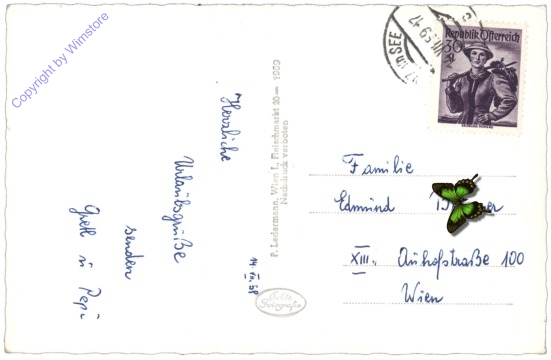 Copyright by Wimstore
Herzliche
Urlaubsgrüße
senden
Gretl u Pepi
P. Ledermann, Wien I., Fleischmarkt 20 — 1969
Nachdruck verboten
SEE
Republik Österreich
30
Familie
Edmund
XIII. Auhofstraße 100
Wien